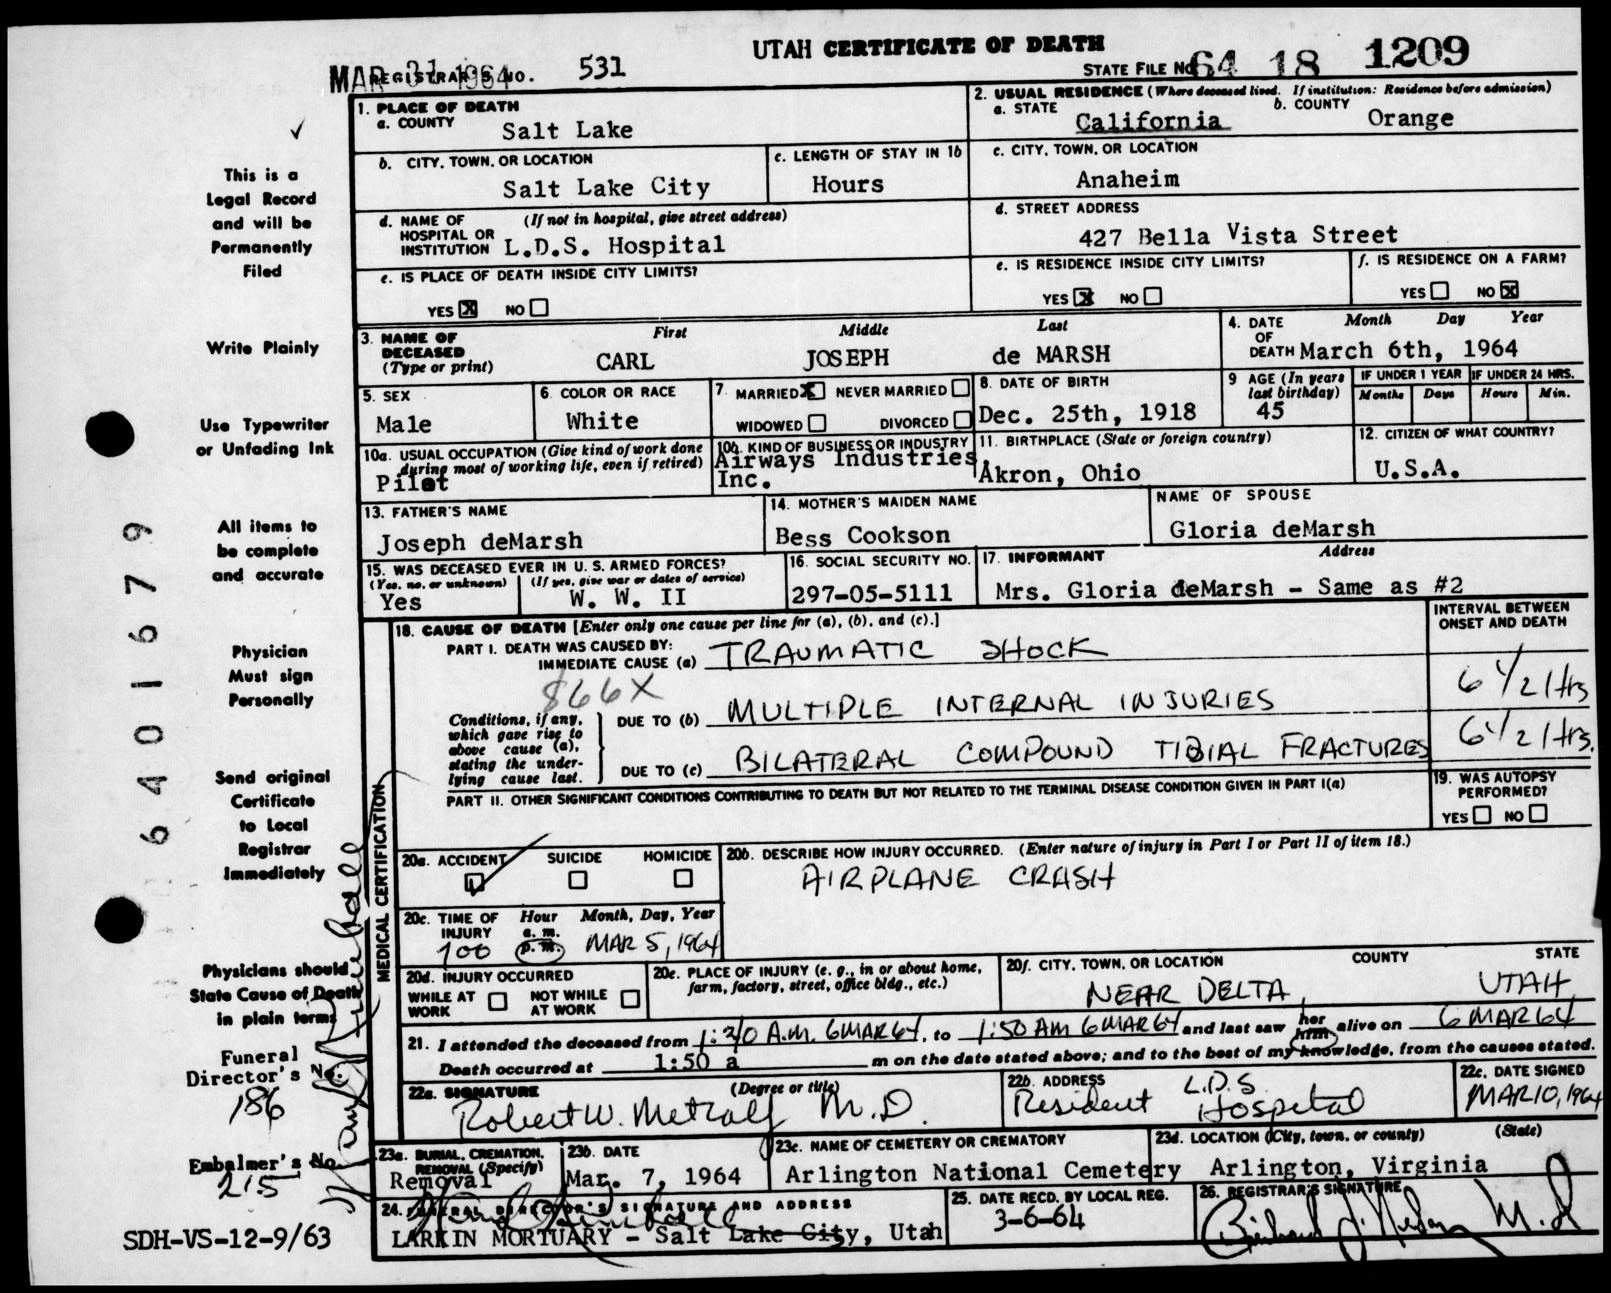 UTAH CERTIFICATE OF DEATH
MAR 31 1964
REGISTRAR'S NO. 531
STATE FILE NO. 64 18 1209
1. PLACE OF DEATH
a. COUNTY Salt Lake
2. USUAL RESIDENCE (Where deceased lived. If institution: Residence before admission)
a. STATE California b. COUNTY Orange
b. CITY, TOWN, OR LOCATION Salt Lake City
c. LENGTH OF STAY IN 1b Hours
c. CITY, TOWN, OR LOCATION Anaheim
d. NAME OF HOSPITAL OR INSTITUTION (If not in hospital, give street address) L.D.S. Hospital
d. STREET ADDRESS 427 Bella Vista Street
e. IS PLACE OF DEATH INSIDE CITY LIMITS? YES X NO
e. IS RESIDENCE INSIDE CITY LIMITS? YES X NO
f. IS RESIDENCE ON A FARM? YES NO X
3. NAME OF DECEASED (Type or print) First CARL Middle JOSEPH Last de MARSH
4. DATE OF DEATH Month Day Year March 6th, 1964
5. SEX Male
6. COLOR OR RACE White
7. MARRIED X NEVER MARRIED
WIDOWED DIVORCED
8. DATE OF BIRTH Dec. 25th, 1918
9 AGE (In years last birthday) 45
IF UNDER 1 YEAR Months Days
IF UNDER 24 HRS. Hours Min.
10a. USUAL OCCUPATION (Give kind of work done during most of working life, even if retired) Pilot
10b. KIND OF BUSINESS OR INDUSTRY Airways Industries Inc.
11. BIRTHPLACE (State or foreign country) Akron, Ohio
12. CITIZEN OF WHAT COUNTRY? U.S.A.
13. FATHER'S NAME Joseph deMarsh
14. MOTHER'S MAIDEN NAME Bess Cookson
NAME OF SPOUSE Gloria deMarsh
15. WAS DECEASED EVER IN U. S. ARMED FORCES?
(Yes, no, or unknown) Yes (If yes, give war or dates of service) W. W. II
16. SOCIAL SECURITY NO. 297-05-5111
17. INFORMANT Address
Mrs. Gloria deMarsh - Same as #2
18. CAUSE OF DEATH [Enter only one cause per line for (a), (b), and (c).]
INTERVAL BETWEEN ONSET AND DEATH
PART I. DEATH WAS CAUSED BY:
IMMEDIATE CAUSE (a) TRAUMATIC SHOCK
866X
Conditions, if any, which gave rise to above cause (a), stating the underlying cause last.
DUE TO (b) MULTIPLE INTERNAL INJURIES 6 1/2 Hrs
DUE TO (c) BILATERAL COMPOUND TIBIAL FRACTURES 6 1/2 Hrs.
PART II. OTHER SIGNIFICANT CONDITIONS CONTRIBUTING TO DEATH BUT NOT RELATED TO THE TERMINAL DISEASE CONDITION GIVEN IN PART I(a)
19. WAS AUTOPSY PERFORMED? YES NO
20a. ACCIDENT SUICIDE HOMICIDE
20b. DESCRIBE HOW INJURY OCCURRED. (Enter nature of injury in Part I or Part II of item 18.)
AIRPLANE CRASH
20c. TIME OF INJURY Hour a. m. p. m. Month, Day, Year
700 MAR 5, 1964
20d. INJURY OCCURRED
WHILE AT WORK NOT WHILE AT WORK
20e. PLACE OF INJURY (e. g., in or about home, farm, factory, street, office bldg., etc.)
20f. CITY, TOWN, OR LOCATION COUNTY STATE
NEAR DELTA, UTAH
21. I attended the deceased from 1:20 A.M. 6 MAR 64, to 1:50 AM 6 MAR 64 and last saw her him alive on 6 MAR 64
Death occurred at 1:50 a m on the date stated above; and to the best of my knowledge, from the causes stated.
22a. SIGNATURE (Degree or title) Robert W. Metcalf M.D.
22b. ADDRESS Resident L.D.S. Hospital
22c. DATE SIGNED MAR 10, 1964
23a. BURIAL, CREMATION, REMOVAL (Specify) Removal
23b. DATE Mar. 7, 1964
23c. NAME OF CEMETERY OR CREMATORY Arlington National Cemetery
23d. LOCATION (City, town, or county) (State) Arlington, Virginia
24. FUNERAL DIRECTOR'S SIGNATURE AND ADDRESS
LARKIN MORTUARY - Salt Lake City, Utah
25. DATE RECD. BY LOCAL REG. 3-6-64
26. REGISTRAR'S SIGNATURE
MEDICAL CERTIFICATION
This is a
Legal Record
and will be
Permanently
Filed
Write Plainly
Use Typewriter
or Unfading Ink
All items to
be complete
and accurate
Physician
Must sign
Personally
Send original
Certificate
to Local
Registrar
Immediately
Physicians should
State Cause of Death
in plain terms
Funeral
Director's No.
186
Embalmer's No
215
SDH-VS-12-9/63
6401679